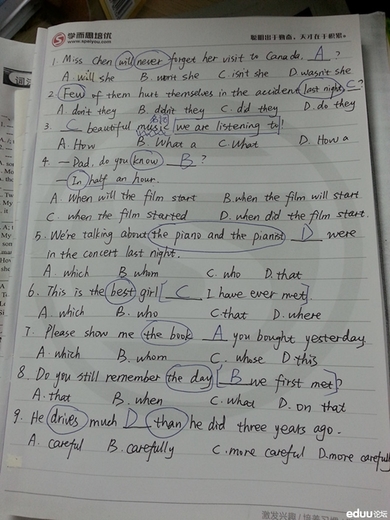 学而思培优
www.speiyou.com
聪明出于勤奋,天才在于积累。
1. Miss Chen will never forget her visit to Canada, A ?
A. will she B. won't she C. isn't she D. wasn't she
2. Few of them hurt themselves in the accident last night, C ?
A. don't they B. didn't they C. did they D. do they
3. C beautiful music we are listening to!
A. How B. What a C. What D. How a
4. — Dad, do you know B ?
— In half an hour.
A When will the film start B. when the film will start
C. when the film started D. when did the film start.
5. We're talking about the piano and the pianist D were
in the concert last night.
A. which B. whom C. who D. that
6. This is the best girl C I have ever met.
A. which B. who C. that D. where
7. Please show me the book A you bought yesterday
A. which B. whom C. whose D this
8. Do you still remember the day B we first met?
A. that B. when C. what D. on that
9. He drives much D than he did three years ago.
A. careful B. carefully C. more careful D. more carefully
激发兴趣
eduu论坛